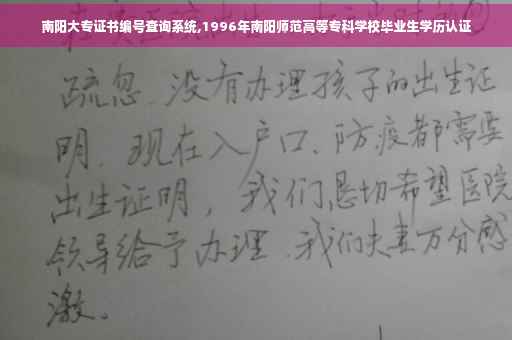 南阳大专证书编号查询系统,1996年南阳师范高等专科学校毕业生学历认证
疏忽、没有办理孩子的出生证
明、现在入户口、防疫都需要
出生证明，我们恳切希望医院
领导给予办理、我们夫妻万分感
激。